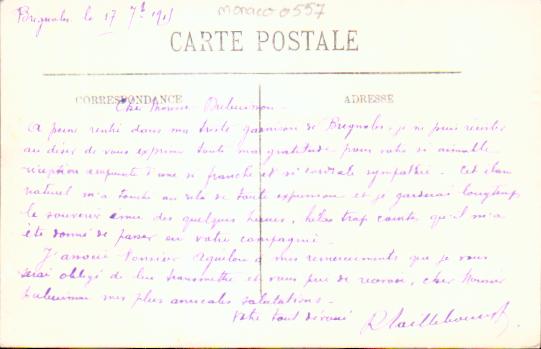 Brignoles le 17 7bre 1915
monaco 0557
CARTE POSTALE
CORRESPONDANCE
ADRESSE
Cher Monsieur
A peine rentré dans ma triste garnison de Brignoles, je ne puis résister
au désir de vous exprimer toute ma gratitude pour votre si aimable
réception empreinte d'une si franche et si cordiale sympathie. Cet élan
naturel m'a touché au delà de toute expression et je garderai longtemps
le souvenir ému des quelques heures, hélas trop courtes qu'il m'a
été donné de passer en votre compagnie.
J'associe Monsieur à mes remerciements que je vous
serai obligé de lui transmettre et vous prie de recevoir, cher Monsieur
mes plus amicales salutations.
Votre tout dévoué